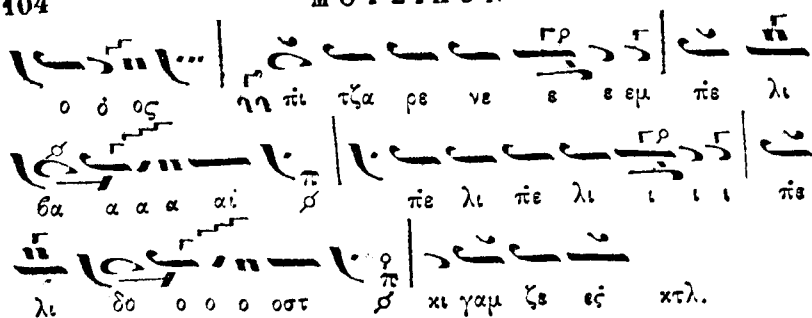 104
ο ό ος πι τζα ρε νε ε ε εμ πε λι
βα α α α αϊ πε λι πε λι ι ι ι πε
λι δο ο ο ο οστ κι γαμ ζε ες κτλ.